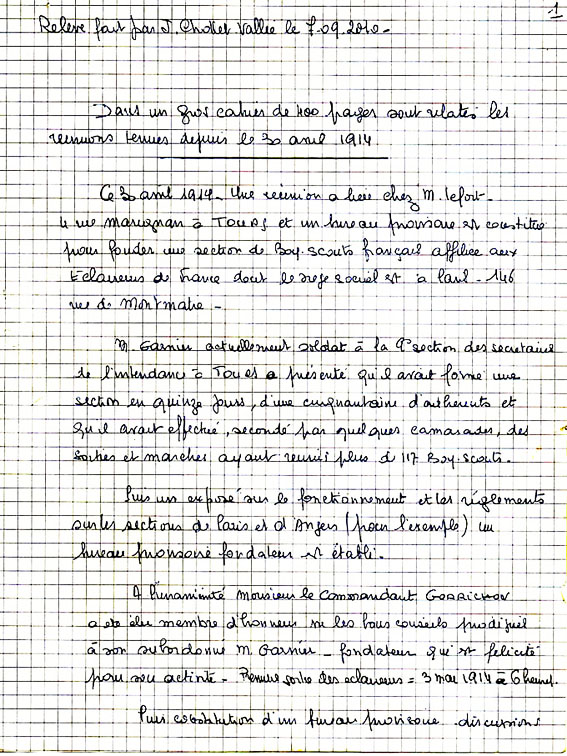 1
Relevé fait par J. Chollet Vallée le 7.09.2010.-
Dans un gros cahier de 400 pages sont relatés les
réunions tenues depuis le 30 avril 1914
Ce 30 avril 1914 - Une réunion a lieu chez M. Lefort-
4 rue Marignan à TOURS et un bureau provisoire est constitué
pour fonder une section de Boy-scouts français affiliée aux
Eclaireurs de France dont le siège social est à Paris - 146
rue de Montmartre -
M. Garnier actuellement soldat à la 9e section des secretaires
de l'intendance à Tours a présenté qu'il avait formé une
section en quinze jours, d'une cinquantaine d'adhérents et
qu'il avait effectué, secondé par quelques camarades, des
sorties et marches ayant réuni plus de 117 Boy-scouts.
Puis un exposé sur le fonctionnement et les règlements
sur les sections de Paris et d'Angers (pour l'exemple) un
bureau provisoire fondateur est établi.
A l'unanimité Monsieur le Commandant GORRICHON
a été élu membre d'honneur vu les bons conseils prodigués
à son subordonné M. Garnier - fondateur qui est félicité
pour son activité - Première sortie des éclaireurs = 3 mai 1914 à 6 heures.
Puis constitution d'un bureau provisoire - discussions